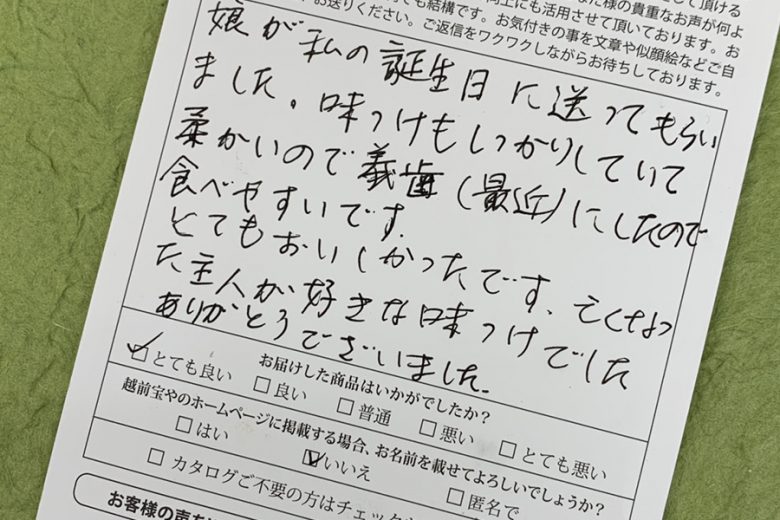 様の貴重なお声が何よ
向上にも活用させて頂いております。お
でも結構です。お気付きの事を文章や似顔絵などご自
お送りください。ご返信をワクワクしながらお待ちしております。
娘が私の誕生日に送ってもらい
ました。味つけもしっかりしていて
柔かいので義歯(最近)にしたので
食べやすいです.
とてもおいしかったです、亡くなっ
た主人が好きな味つけでした
ありがとうございました.
お届けした商品はいかがでしたか?
とても良い 良い 普通 悪い とても悪い
越前宝やのホームページに掲載する場合、お名前を載せてよろしいでしょうか?
はい いいえ 匿名で
カタログご不要の方はチェック
お客様の声を